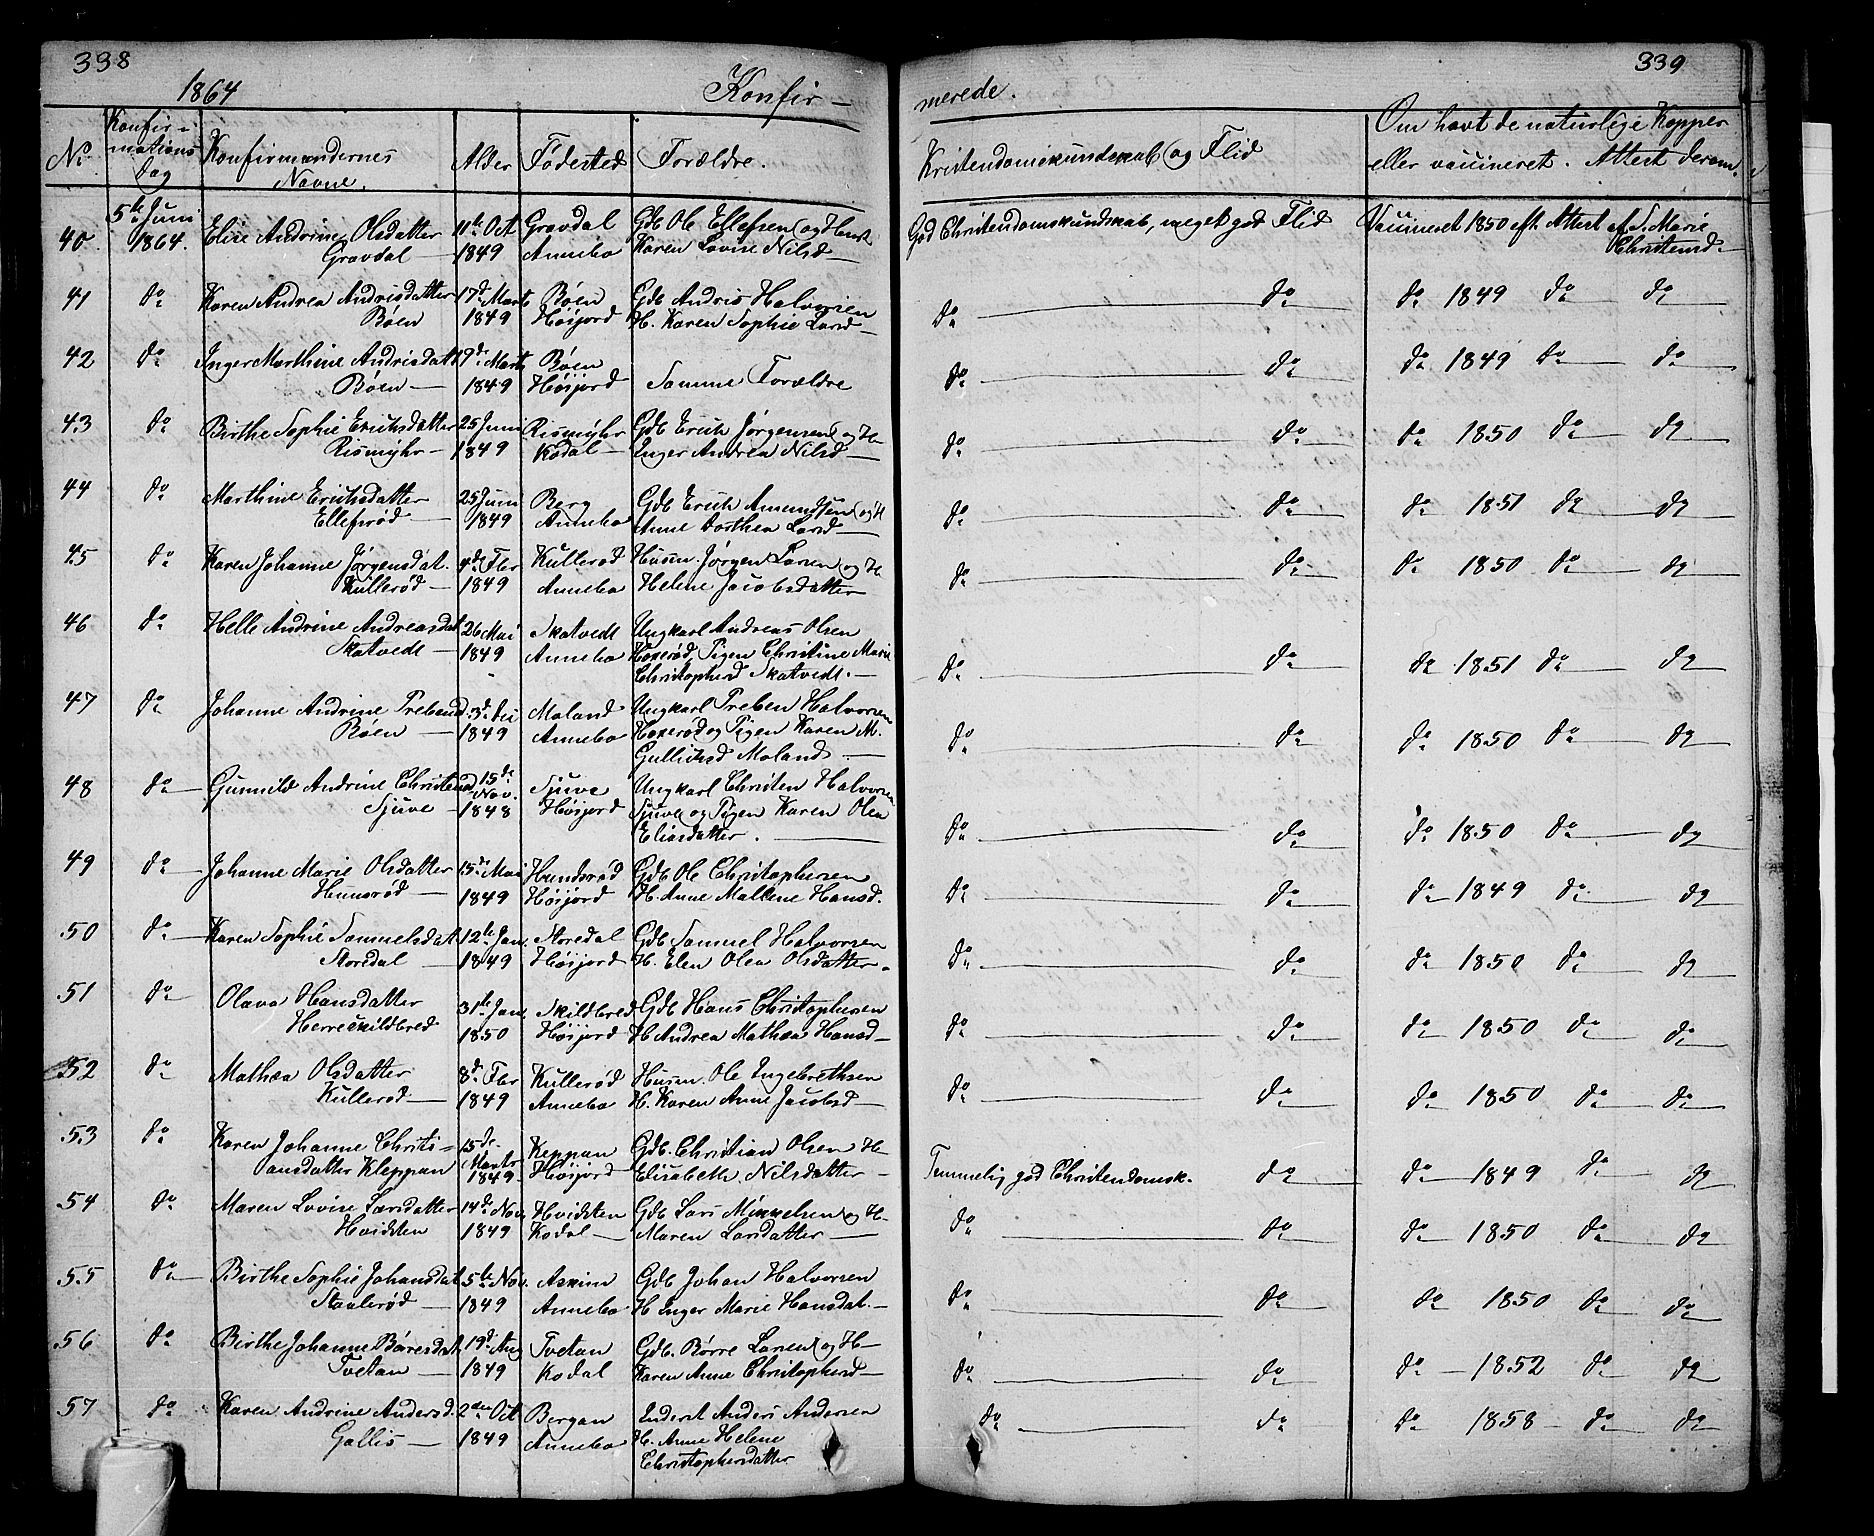 338
1864
Konfir-
No
Konfir-
mations
Dag
Konfirmandernes
Navne.
Alder
Fødested
Forældre.
40
5te Juni
1864.
Elise Andrine Olsdatter
Gravdal
11te Oct
1849
Gravdal
Annebo
Gdb Ole Ellefsen og Hust
Karen Lovise Nilsd
41
do
Karen Andrea Andrisdatter
Bøen
17de Marts
1849
Bøen
Høijord
Gdb Andris Halvorsen
H. Karen Sophie Larsd
42
do
Inger Marthine Andrisdatt
Bøen
9de Marts
1849
Bøen
Høijord
Samme Forældre
43
do
Birthe Sophie Eriksdatter
Rismyhr
25 Juni
1849
Rismyhr
Kodal
Gdb Erick Jørgensen og H
Inger Andrea Nilsd
44
do
Marthine Eriksdatter
Ellefsrød
25 Juni
1849
Berg
Annebo
Gdb Erick Amundsen og H
Anne Dorthea Larsd
45
do
Karen Johanne Jørgensdat.
Kullerød
4de Fbr
1849
Kullerød
Annebo
Husm. Jørgen Larsen og H.
Helene Jacobsdatter
46
do
Helle Andrine Andreasdat
Skatvedt
26 Mai
1849
Skatvedt
Annebo
Ungkarl Andreas Olsen
Haxerød, Pigen Christine Marie
Christophersd Skatvedt.
47
do
Johanne Andrine Prebensd
Bøen
3de Dec
1849
Moland
Annebo
Ungkarl Preben Halvorsen
Haxerød og Pigen Karen M.
Gullicksd Moland
48
do
Gunnild Andrine Christensd
Sjuve
15de
Nov.
1848
Sjuve
Høijord
Ungkarl Christen Halvorsen
Sjuve og Pigen Karen Olea
Eliasdatter.
49
do
Johanne Marie Olsdatter
Hunsrød
15de Mai
1849
Hundsrød
Høijord
Gdb Ole Christophersen
H. Anne Mallene Hansd.
50
do
Karen Sophie Samuelsdat
Storedal
12te Jan.
1849
Storedal
Høijord
Gdb Samuel Halvorsen
H. Elen Olea Olsdatter.
51
do
Olava Hansdatter
Herreskildbred
31te Jan.
1850
Skildbred
Høijord
Gdb Hans Christophersen
H Andrea Mathea Hansd
52
do
Mathea Olsdatter
Kullerød
8de Fbr
1849
Kullerød
Annebo
Husm. Ole Engebrethsen
H. Karen Anne Jacobsd
53
do
Karen Johanne Christi-
ansdatter Kleppan
15de
Marts
1849.
Keppan
Høijord
Gdb. Christian Olsen H
Elisabeth Nilsdatter
54
do
Maren Lovise Larsdatter
Hvidsten
14de Nov.
1849
Hvidsten
Kodal
Gdb Lars Mikkelsen og H
Maren Larsdatter
55
do
Birthe Sophie Johansdat
Staalerød
5te Nov.
1849
Askim
Annebo
Gdb Johan Halvorsen
H Inger Marie Hansdat.
56
do
Birthe Johanne Børresdat
Tvetan
19de Aug
1849
Tvetan
Kodal
Gdb. Børre Larsen og H
Karen Anne Christophersd
57
do
Karen Andrine Andersd.
Gallis
2den Oct
1849
Bergan
Annebo
Inderst Anders Andersen
H. Anne Helene
Christophersdatter
339
merede.
Kristendomskundskab og Flid
Om havt de naturlige Kopper
eller vaccineret. Attest derom.
God Christendomskundskab, meget god Flid
Vaccineret 1850 eft. Attest af S. Marie
Christensd
do do do 1849 do do
do do do 1849 do do
do do do 1850 do do
do do do 1851 do do
do do do 1850 do do
do do do 1851 do do
do do do 1850 do do
do do do 1850 do do
do do do 1849 do do
do do do 1850 do do
do do do 1850 do do
do do do 1850 do do
Temmelig god Christendomsk. do do 1849 do do
do do do 1850 do do
do do do 1850 do do
do do do 1852 do do
do do do 1858 do do